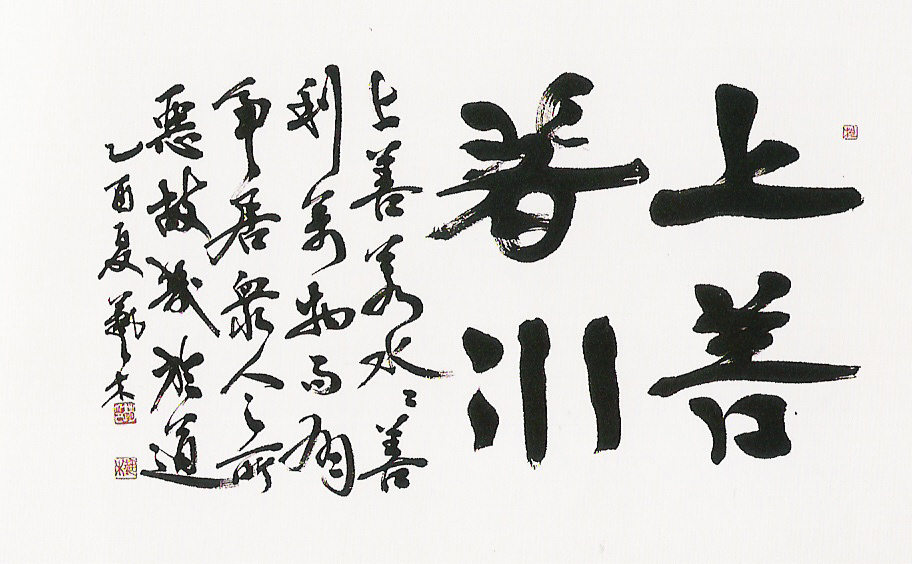 上善
若水
上善若水〻善
利萬物而有
争居衆人之所
惡故幾於道
乙酉夏